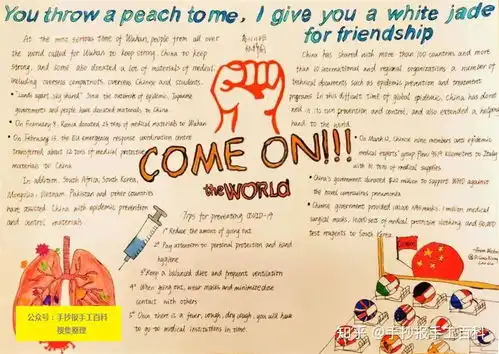 You throw a peach to me, I give you a white jade
for friendship
At the most serious time of Wuhan, people from all over
the world called for Wuhan to keep strong, China to keep
strong, and some also donated a lot of materials of medical,
including overseas compatriots, overseas Chinese and students.
Since the outbreak of epidemic, Japanese
government and people have donated materials to China
On February 9, Korea donated tons of medical materials to Wuhan
On February the EU emergency response coordination centre
transferred about 12 tons of medical protective
materials to China
In addition, South Africa, South Korea,
Mongolia, Vietnam, Pakistan and other countries
have assisted China with epidemic prevention
and control materials.
COME ON!!!
the WORLD
China has shared with more than 100 countries and more
than 10 international and regional organizations a number of
technical documents such as epidemic prevention and treatment
programs. In this difficult time of global epidemic, China has done
well in its own prevention and control, and also extended a helping
hand to the world
On March 12, Chinese nine members anti epidemic
medical experts' group flew kilometres to Italy
with tons of medical supplies.
China's government donated $20 million to support WHO against
the novel coronavirus pneumonia
China's government provided N95 masks, 1 million medical
surgical masks, 10,000 sets of medical protective clothing and 50,000
test reagents to South Korea
Tips for preventing COVID-19
1° Reduce the amount of going out
2° Pay attention to personal protection and hand
hygiene
3° Keep a balanced diet and frequent ventilation
4° When going out, wear masks and minimize close
contact with others
5° Once there is a fever, cough, dry cough, you will have
to go to medical institutions in time.
公众号：手抄报手工百科
搜集整理
知乎 @手抄报手工百科